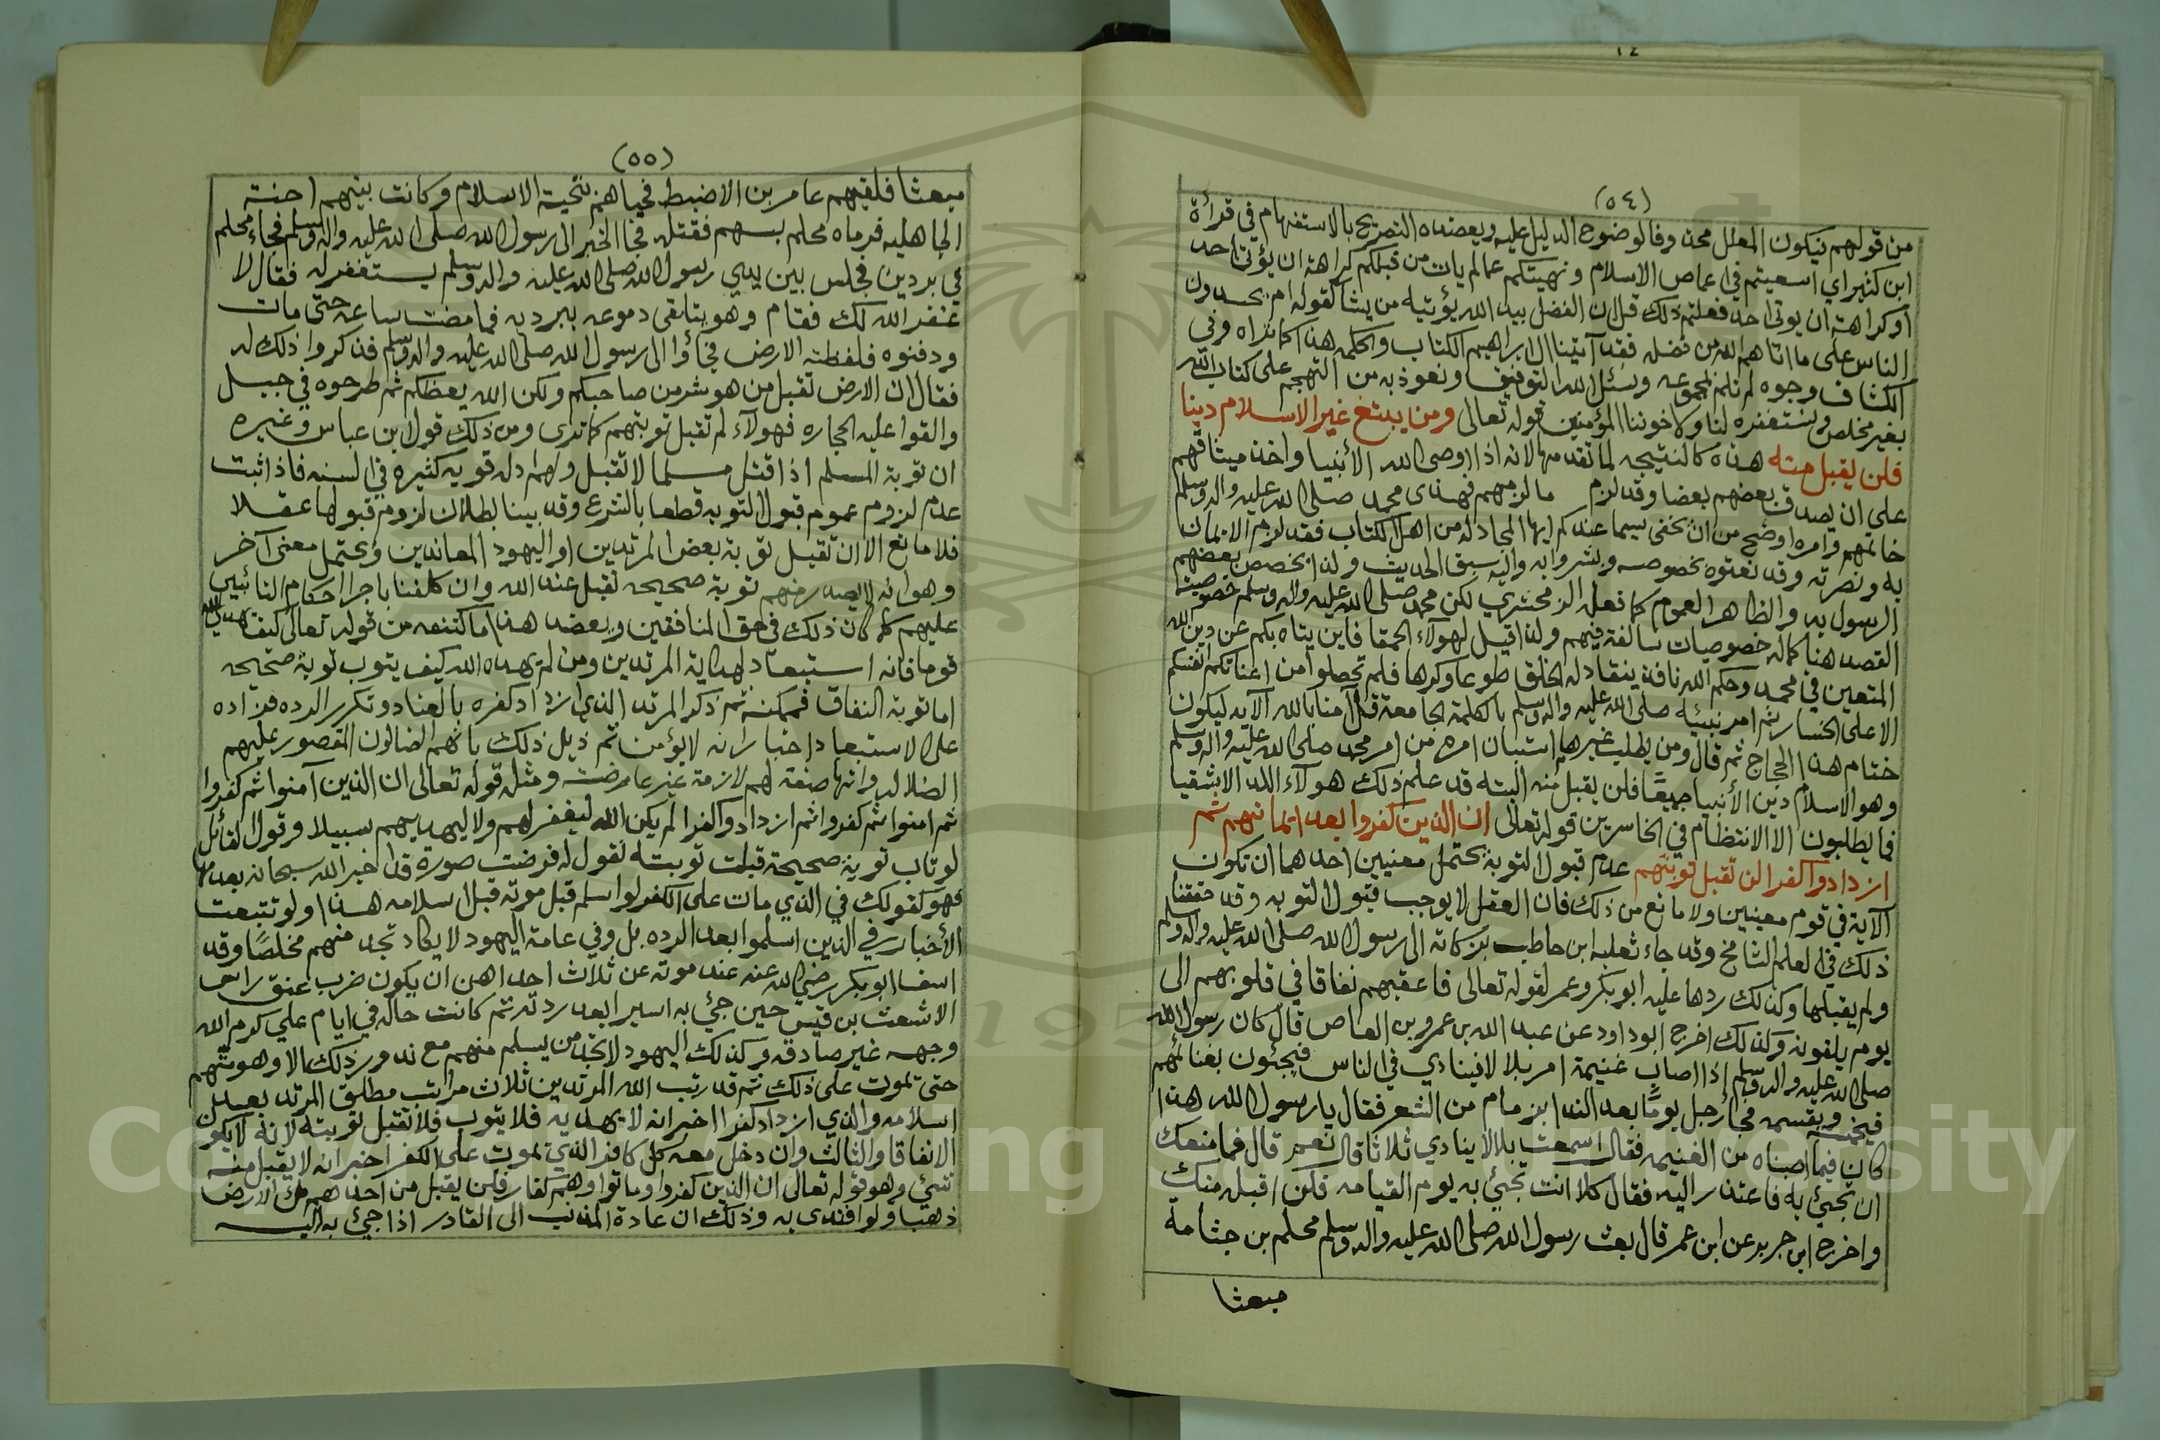 (٥٤)
من قولهم فيكون المعلل محذوفا لوضوح الدليل عليه ويعضده التصريح بالاستفهام في قرأة
ابن كثير اي اسعيتم في اعماص الاسلام ونهيتكم عما لم يات من قبلكم كراهة ان يؤتى احد
او كراهة ان يوتى احد فعلتم ذلك قل ان الفضل بيد الله يؤتيه من يشا كقوله ام يحسدون
الناس على ما اتاهم الله من فضله فقد آتينا ال ابراهيم الكتاب والحكمه هذا كما تراه وفي
الكشاف وجوه لم تلم بمجموعه ونسئل الله التوفيق ونعوذ به من التهجم على كتاب الله
بغير مخلص ونستغفره لنا ولاخوننا المؤمنين قوله تعالى ومن يبتغ غير الاسلام دينا
فلن يقبل منه هذه كالنتيجه لما تقدمها لانه اذا اوصى الله الأنبيا واخذ ميثاقهم
على ان يصدق بعضهم بعضا وقد لزم ما لزمهم فهذى محمد صلى الله عليه واله وسلم
خاتمهم وامره اوضح من ان يخفى سيما عندكم ايها المجادله من اهل الكتاب فقد لزم الايمان
به ونصرته وقد نعتوه بخصوصه وبشروا به واليه سبق الحديث ولذا يخصص بعضهم
الرسول به والظاهر العموم كما فعله الزمخشري لكن محمد صلى الله عليه واله وسلم خصوصيته
القصد هنا كماله خصوصيات سالفة فيهم ولذا قيل لهولآء الحمقا فاين يتاه بكم عن دين الله
المتعين في محمد وحكم الله نافذ ينقاد له الخلق طوعا وكرها فلم تحصلوا من اعناتكم انفسكم
الا على الخسار ثم امر نبيئه صلى الله عليه واله وسلم بالكلمة الجامعة قل آمنا بالله الآيه ليكون
ختام هذا الحجاج ثم قال ومن يطلب غيرها استبان امره من امر محمد صلى الله عليه واله وسلم
وهو الاسلام دين الأنبيا جميعًا فلن يقبل منه البته قد علم ذلك هولآء اللد الاشقيا
فما يطلبون الا الانتظام في الخاسرين قوله تعالى ان الذين كفروا بعد ايمانهم ثم
ازدادوا كفرا لن تقبل توبتهم عدم قبول التوبة يحتمل معنيين احدهما ان تكون
الآية في قوم معينين ولا مانع من ذلك فان العقل لا يوجب قبول التوبه وقد حققنا
ذلك في العلم الشامخ وقد جاء ثعلبه ابن حاطب بزكاته الى رسول الله صلى الله عليه واله وسلم
ولم يقبلها وكذلك ردها عليه ابو بكر وعمر لقوله تعالى فاعقبهم نفاقا في قلوبهم الى
يوم يلقونه وكذلك اخرج ابو داود عن عبد الله بن عمرو بن العاص قال كان رسول الله
صلى الله عليه واله وسلم اذا اصاب غنيمة امر بلالا فينادي في الناس فيجئون بغنائمهم
فيخمسه ويقسمه فجا رجل يومًا بعد الندا بزمام من الشعر فقال يا رسول الله هذا
كان فيما اصبناه من الغنيمه فقال اسمعت بلالا ينادي ثلاثا قال نعم قال فما منعك
ان تجيئ به فاعتذر اليه فقال كلا انت تجيئ به يوم القيامه فلن اقبله منك
واخرج ابن جرير عن ابن عمر قال بعث رسول الله صلى الله عليه واله وسلم محلم بن جثامة
مبعثا
(٥٥)
مبعثا فلقيهم عامر بن الاضبط فحياهم بتحية الاسلام وكانت بينهم احنة
الجاهليه فرماه محلم بسهم فقتله فجا الخبر الى رسول الله صلى الله عليه واله وسلم فجاء محلم
في بردين فجلس بين يدي رسول الله صلى الله عليه واله وسلم يستغفر له فقال لا
غفر الله لك فقام وهو يتلقى دموعه ببرديه فما مضت ساعه حتى مات
ودفنوه فلفظته الارض فجاؤا الى رسول الله صلى الله عليه واله وسلم فذكروا ذلك له
فقال ان الارض تقبل من هو شر من صاحبكم ولكن الله يعظكم ثم طرحوه في جبل
والقوا عليه الحجاره فهولآء لم تقبل توبتهم كما ترى ومن ذلك قول ابن عباس وغيره
ان توبة المسلم اذا قتل مسلما لا تقبل ولهم ادله قويه كثيره في السنه فاذا ثبت
عدم لزوم عموم قبول التوبه قطعا بالشرع وقد بينا بطلان لزوم قبولها عقلا
فلا مانع الا ان تقبل توبة بعض المرتدين او اليهود المعاندين ويحتمل معنى آخر
وهو انه لا يصدر منهم توبة صحيحه تقبل عند الله وان كلفنا باجرا احكام التائبين
عليهم كما كان ذلك في حق المنافقين ويعضد هذا ما كتنفه من قوله تعالى كيف يهدي الله
قوما فانه استبعاد لهداية المرتدين ومن لم يهده الله كيف يتوب توبة صحيحه
اما توبة النفاق فممكنه ثم ذكر المرتد الذي ازداد كفره بالعناد وتكرر الرده فزاده
على الاستبعاد اخبارا انه لا يؤمن ثم ذيل ذلك بانهم الضالون المقصور عليهم
الضلاله وانها صفة لهم لازمة غير عارضة ومثله قوله تعالى ان الذين آمنوا ثم كفروا
ثم امنوا ثم كفروا ثم ازدادوا كفرا لم يكن الله ليغفر لهم ولا ليهديهم سبيلا وقول القائل
لو تاب توبة صحيحة قبلت توبته نقول له فرضت صورة قد اخبر الله سبحانه بعدمها
فهو كقولك في الذي مات على الكفر لو اسلم قبل موته قبل اسلامه هذا ولو تتبعت
الأخبار في الذين اسلموا بعد الرده بل وفي عامة اليهود لا يكاد تجد منهم مخلصًا وقد
اسف ابو بكر رضي الله عنه عند موته عن ثلاث احداهن ان يكون ضرب عنق راس
الاشعث بن قيس حين جئ به اسيرا بعد ردته ثم كانت حاله في ايام علي كرم الله
وجهه غير صادقه وكذلك اليهود لا تجد من يسلم منهم مع ندور ذلك الا وهو متهم
حتى تموت على ذلك ثم قد رتب الله المرتدين ثلاث مراتب مطلق المرتد بعد
اسلامه والذي ازداد كفرا اخبر انه لا يهديه فلا يتوب فلا تقبل توبته لانه لا يكون
الا نفاقا والثالث وان دخل معه كل كافر الذي تموت على الكفر اخبر انه لا يقبل منه
شئ وهو قوله تعالى ان الذين كفروا وماتوا وهم كفار فلن يقبل من احدهم ملء الارض
ذهبا ولو افتدى به وذلك ان عادة المذنب الى القادر اذا جئ به اليه